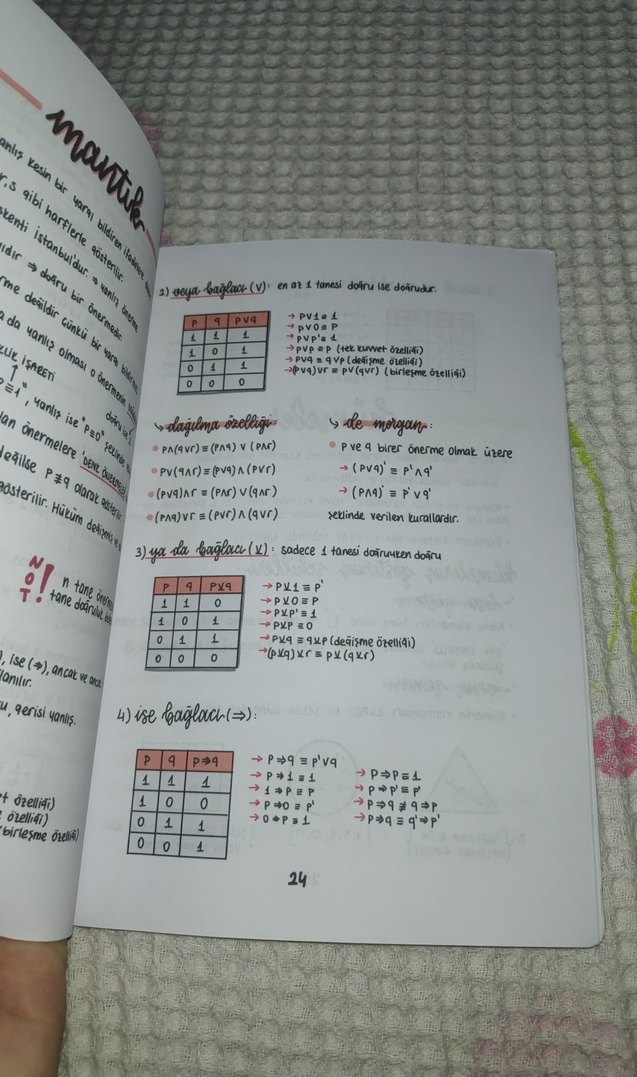 mantık
yanlış kesin bir yargı bildiren ifadelere
r, s gibi harflerle gösterilir.
istanbul'dur. ⇒ yanlış önerme
⇒ doğru bir önermedir.
değildir çünkü bir yargı
da yanlış olması o önermenin
İŞARETİ
1", yanlış ise "p≡0" şeklinde
önermelere DENK ÖNERMELER
değilse p ≢ q olarak gösterilir.
gösterilir. Hüküm değişmiş
NOT! n tane
tane doğruluk
ise (⇒), ancak ve ancak
gerisi yanlış.
özelliği)
özelliği)
(birleşme özelliği)
2) veya bağlacı (∨): en az 1 tanesi doğru ise doğrudur.
p q p∨q
1 1 1
1 0 1
0 1 1
0 0 0
→ p∨1≡1
→ p∨0≡p
→ p∨p'≡1
→ p∨p≡p (tek kuvvet özelliği)
→ p∨q ≡ q∨p (değişme özelliği)
→ (p∨q)∨r ≡ p∨(q∨r) (birleşme özelliği)
↳ dağılma özelliği:
• p∧(q∨r)≡(p∧q) ∨ (p∧r)
• p∨(q∧r)≡(p∨q) ∧ (p∨r)
• (p∨q)∧r ≡ (p∧r) ∨ (q∧r)
• (p∧q)∨r ≡ (p∨r) ∧ (q∨r)
↳ de morgan:
• p ve q birer önerme olmak üzere
→ (p∨q)' ≡ p'∧q'
→ (p∧q)' ≡ p'∨q'
şeklinde verilen kurallardır.
3) ya da bağlacı (⊻): sadece 1 tanesi doğruyken doğru
p q p⊻q
1 1 0
1 0 1
0 1 1
0 0 0
→ p⊻1 ≡ p'
→ p⊻0 ≡ p
→ p⊻p'≡1
→ p⊻p ≡0
→ p⊻q ≡ q⊻p (değişme özelliği)
→ (p⊻q)⊻r ≡ p⊻(q⊻r)
4) ise bağlacı (⇒):
p q p⇒q
1 1 1
1 0 0
0 1 1
0 0 1
→ p⇒q ≡ p'∨q
→ p⇒1 ≡1
→ 1⇒p ≡ p
→ p⇒0 ≡ p'
→ 0⇒p ≡ 1
→ p⇒p≡1
→ p⇒p'≡p'
→ p⇒q ≢ q⇒p
→ p⇒q ≡ q'⇒p'
24